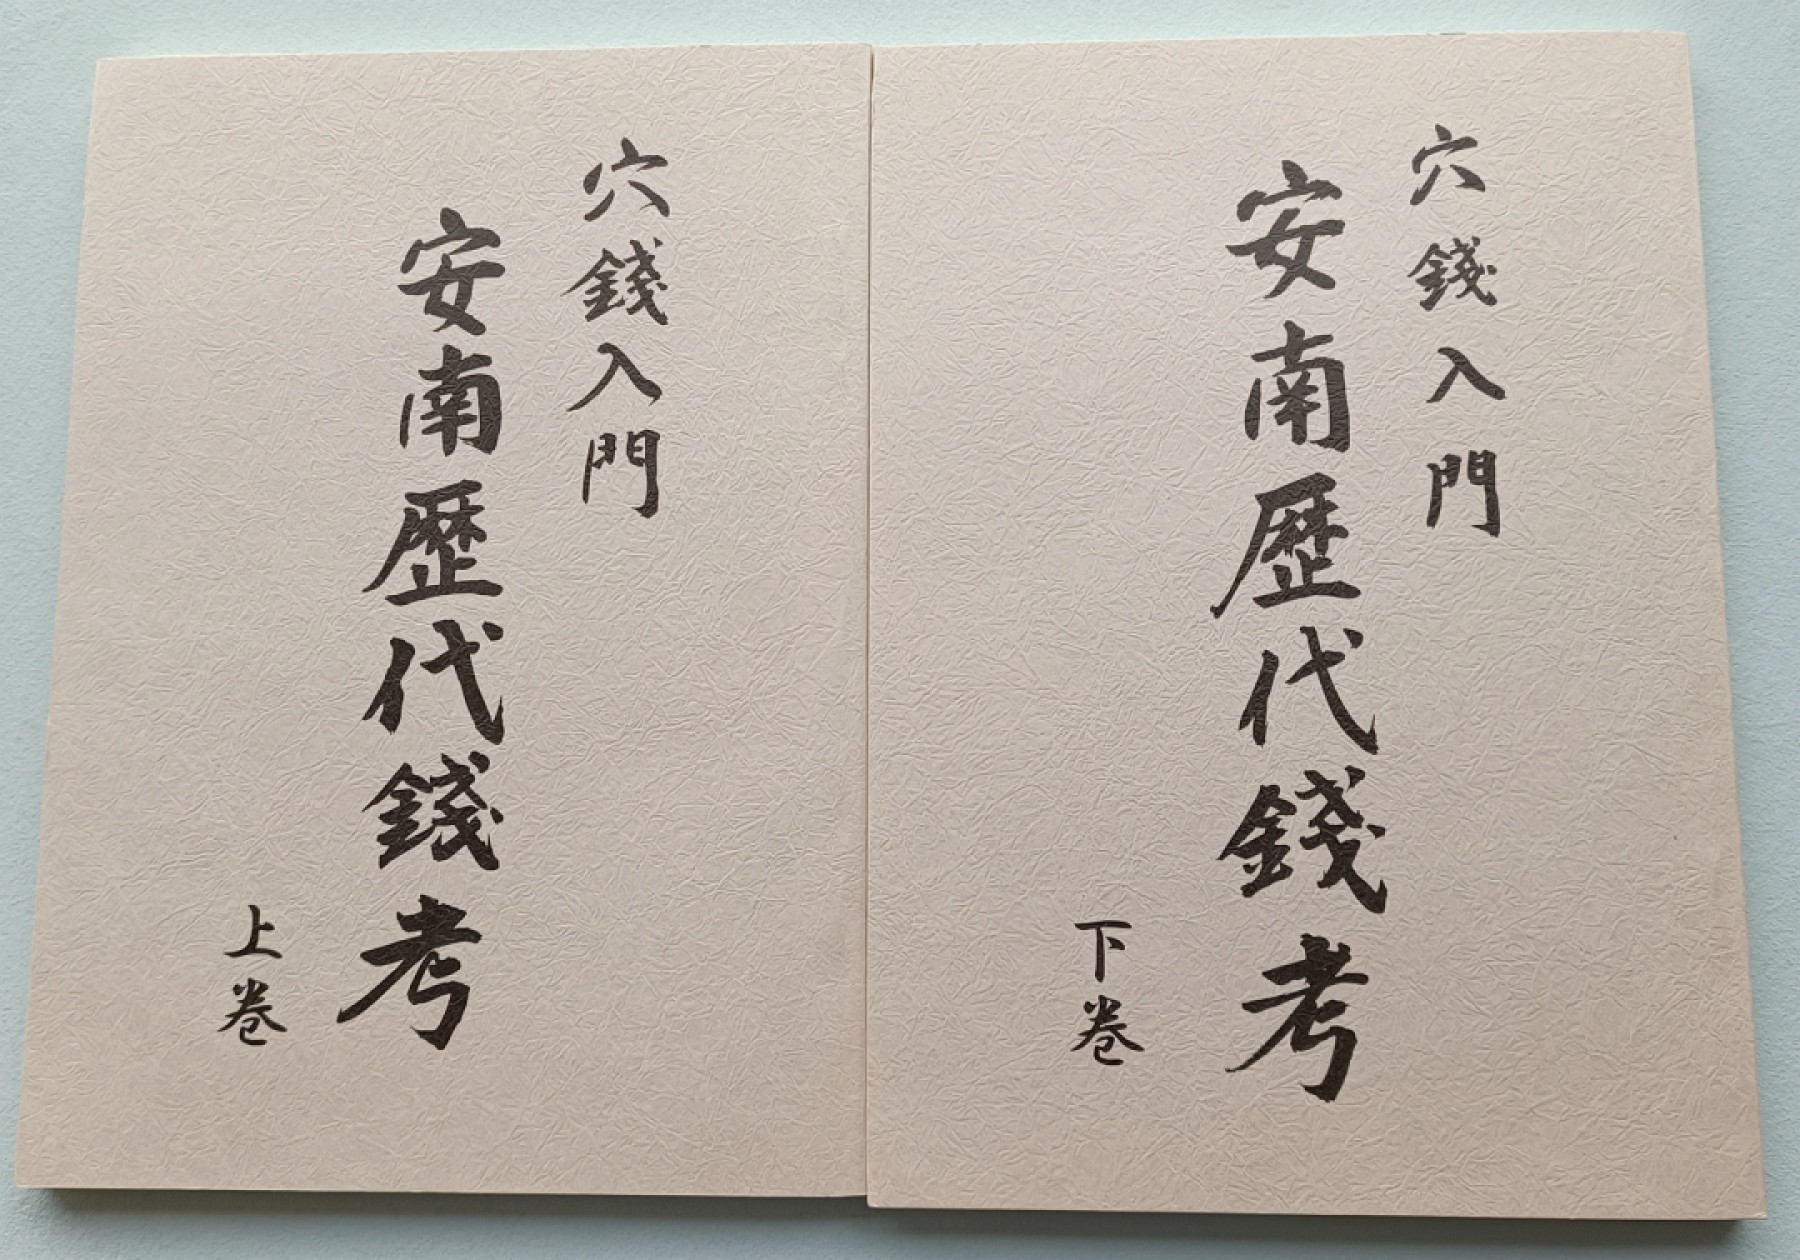 穴錢入門
安南歴代錢考
上巻
穴錢入門
安南歴代錢考
下巻